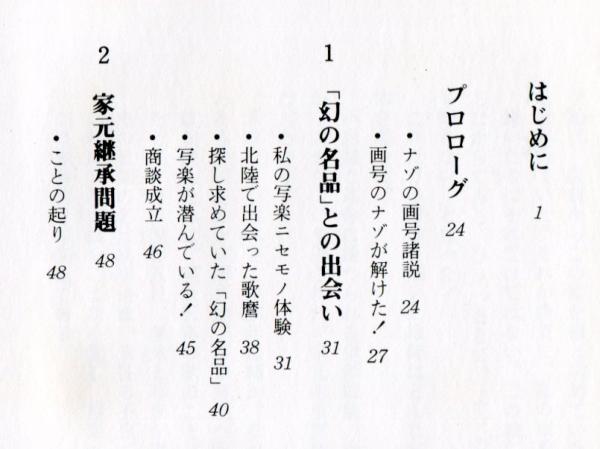 はじめに 1
プロローグ 24
・ナゾの画号諸説 24
・画号のナゾが解けた! 27
1 「幻の名品」との出会い 31
・私の写楽ニセモノ体験 31
・北陸で出会った歌麿 38
・探し求めていた「幻の名品」 40
・写楽が潜んでいる! 45
・商談成立 46
2 家元継承問題 48
・ことの起り 48